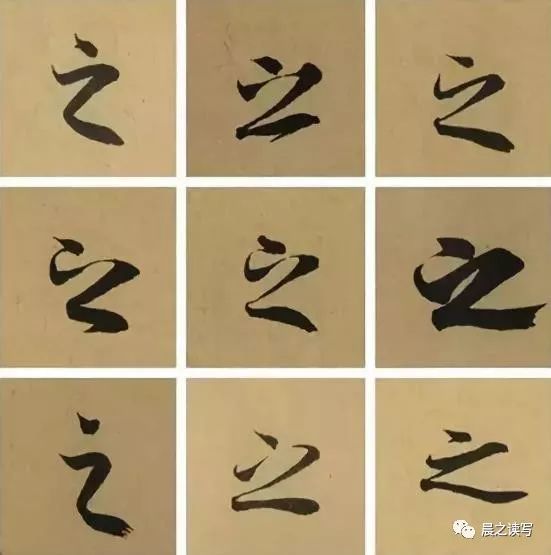 之 之 之
之 之 之
之 之 之
晨之读写